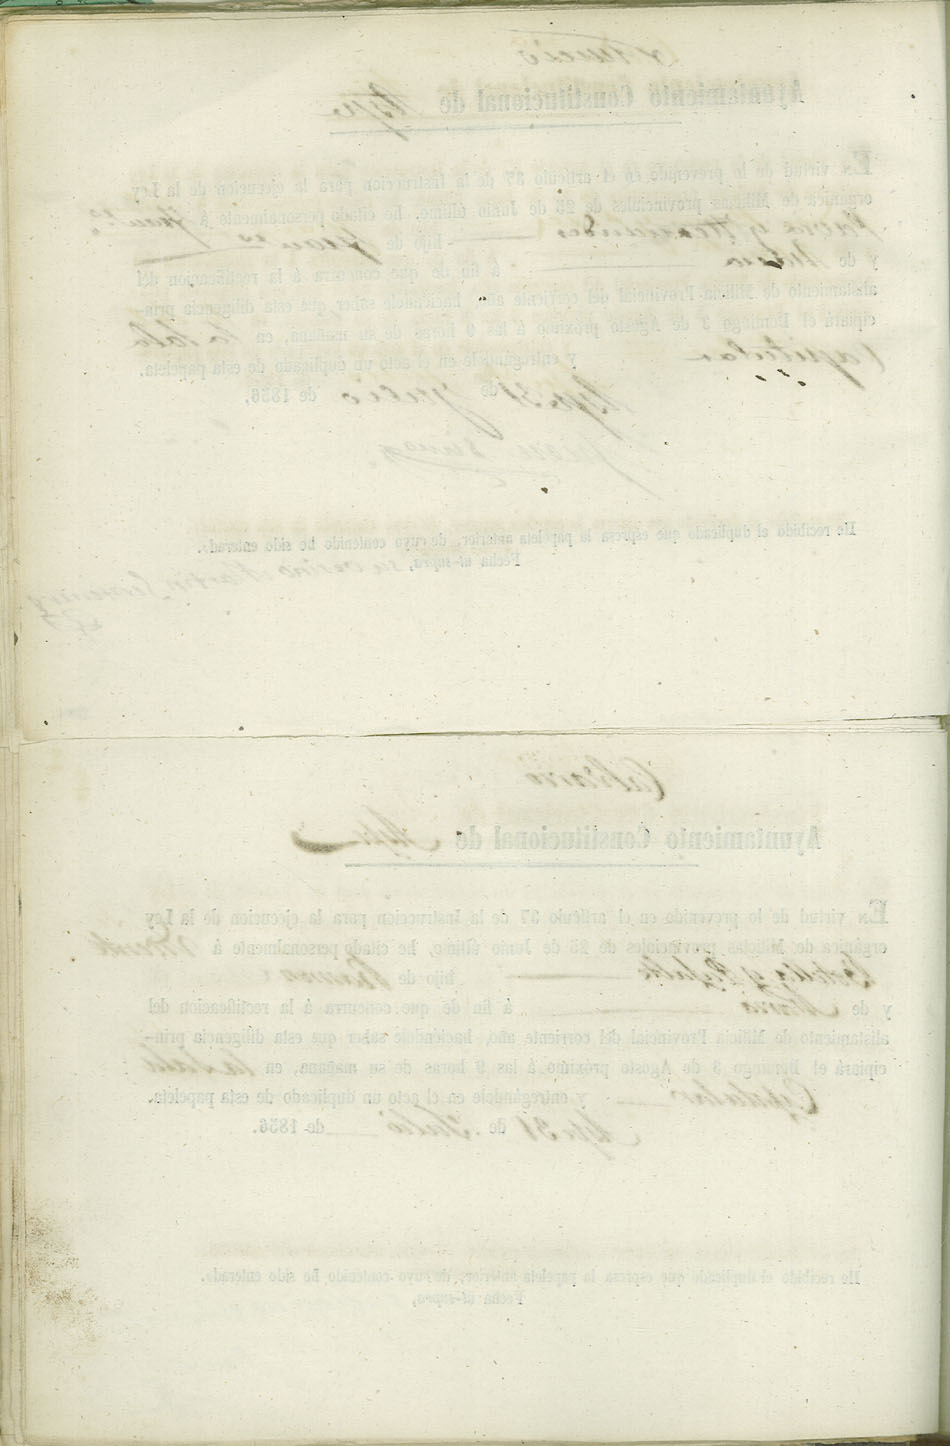 Ayuntamiento Constitucional de Aspe
En virtud de lo prevenido en el artículo 37 de la Instruccion para la ejecucion de la Ley
orgánica de Milicias provinciales de 25 de Junio último, he citado personalmente á
y Hernandez hijo de
y de Maria á fin de que concurra á la rectificacion del
alistamiento de Milicia Provincial del corriente año, haciéndole saber que esta diligencia prin-
cipiará el Domingo 3 de Agosto próximo á las 9 horas de su mañana, en la Sala
Capitular y entregándole en el acto un duplicado de esta papeleta.
Aspe 31 de Julio de 1856.
He recibido el duplicado que espresa la papeleta anterior, de cuyo contenido he sido enterado.
Fecha ut-supra, su vecino
Calvario
Ayuntamiento Constitucional de Aspe
En virtud de lo prevenido en el artículo 37 de la Instruccion para la ejecucion de la Ley
orgánica de Milicias provinciales de 25 de Junio último, he citado personalmente á Vicente
hijo de Ramon
y de Maria á fin de que concurra á la rectificacion del
alistamiento de Milicia Provincial del corriente año, haciéndole saber que esta diligencia prin-
cipiará el Domingo 3 de Agosto próximo á las 9 horas de su mañana, en la Sala
Capitular y entregándole en el acto un duplicado de esta papeleta.
Aspe 31 de Julio de 1856.
He recibido el duplicado que espresa la papeleta anterior, de cuyo contenido he sido enterado.
Fecha ut-supra,